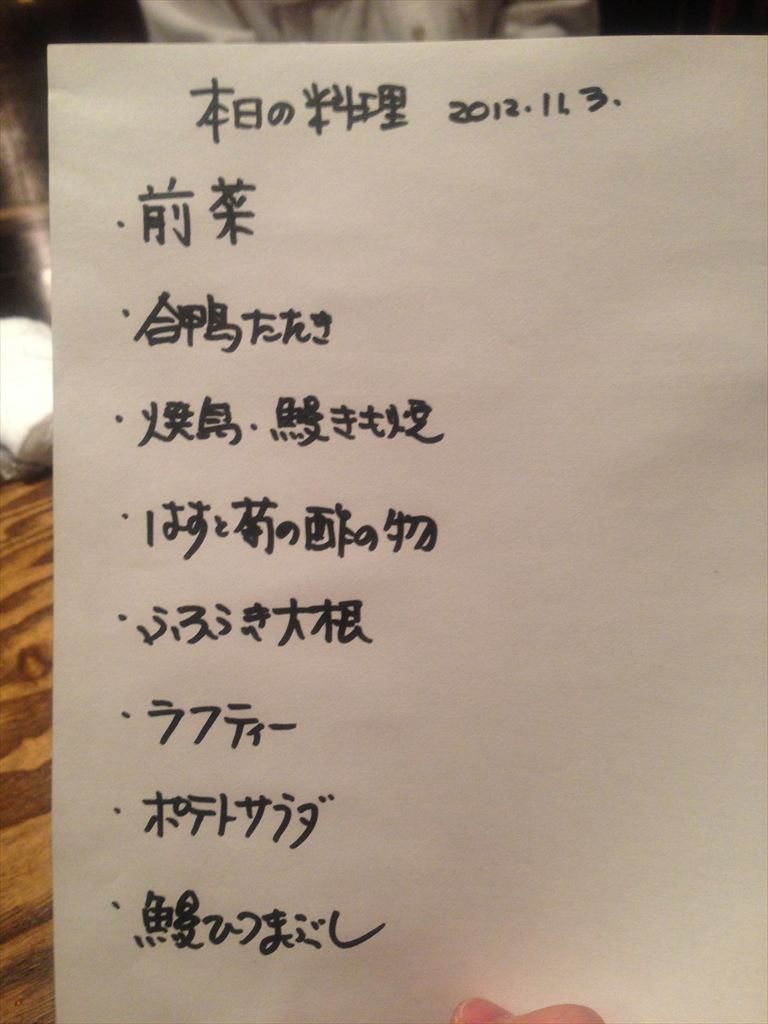 本日の料理 2012.11.3.
・前菜
・合鴨たたき
・焼鳥・鰻きも焼
・はすと菊の酢の物
・ふろふき大根
・ラフティー
・ポテトサラダ
・鰻ひつまぶし